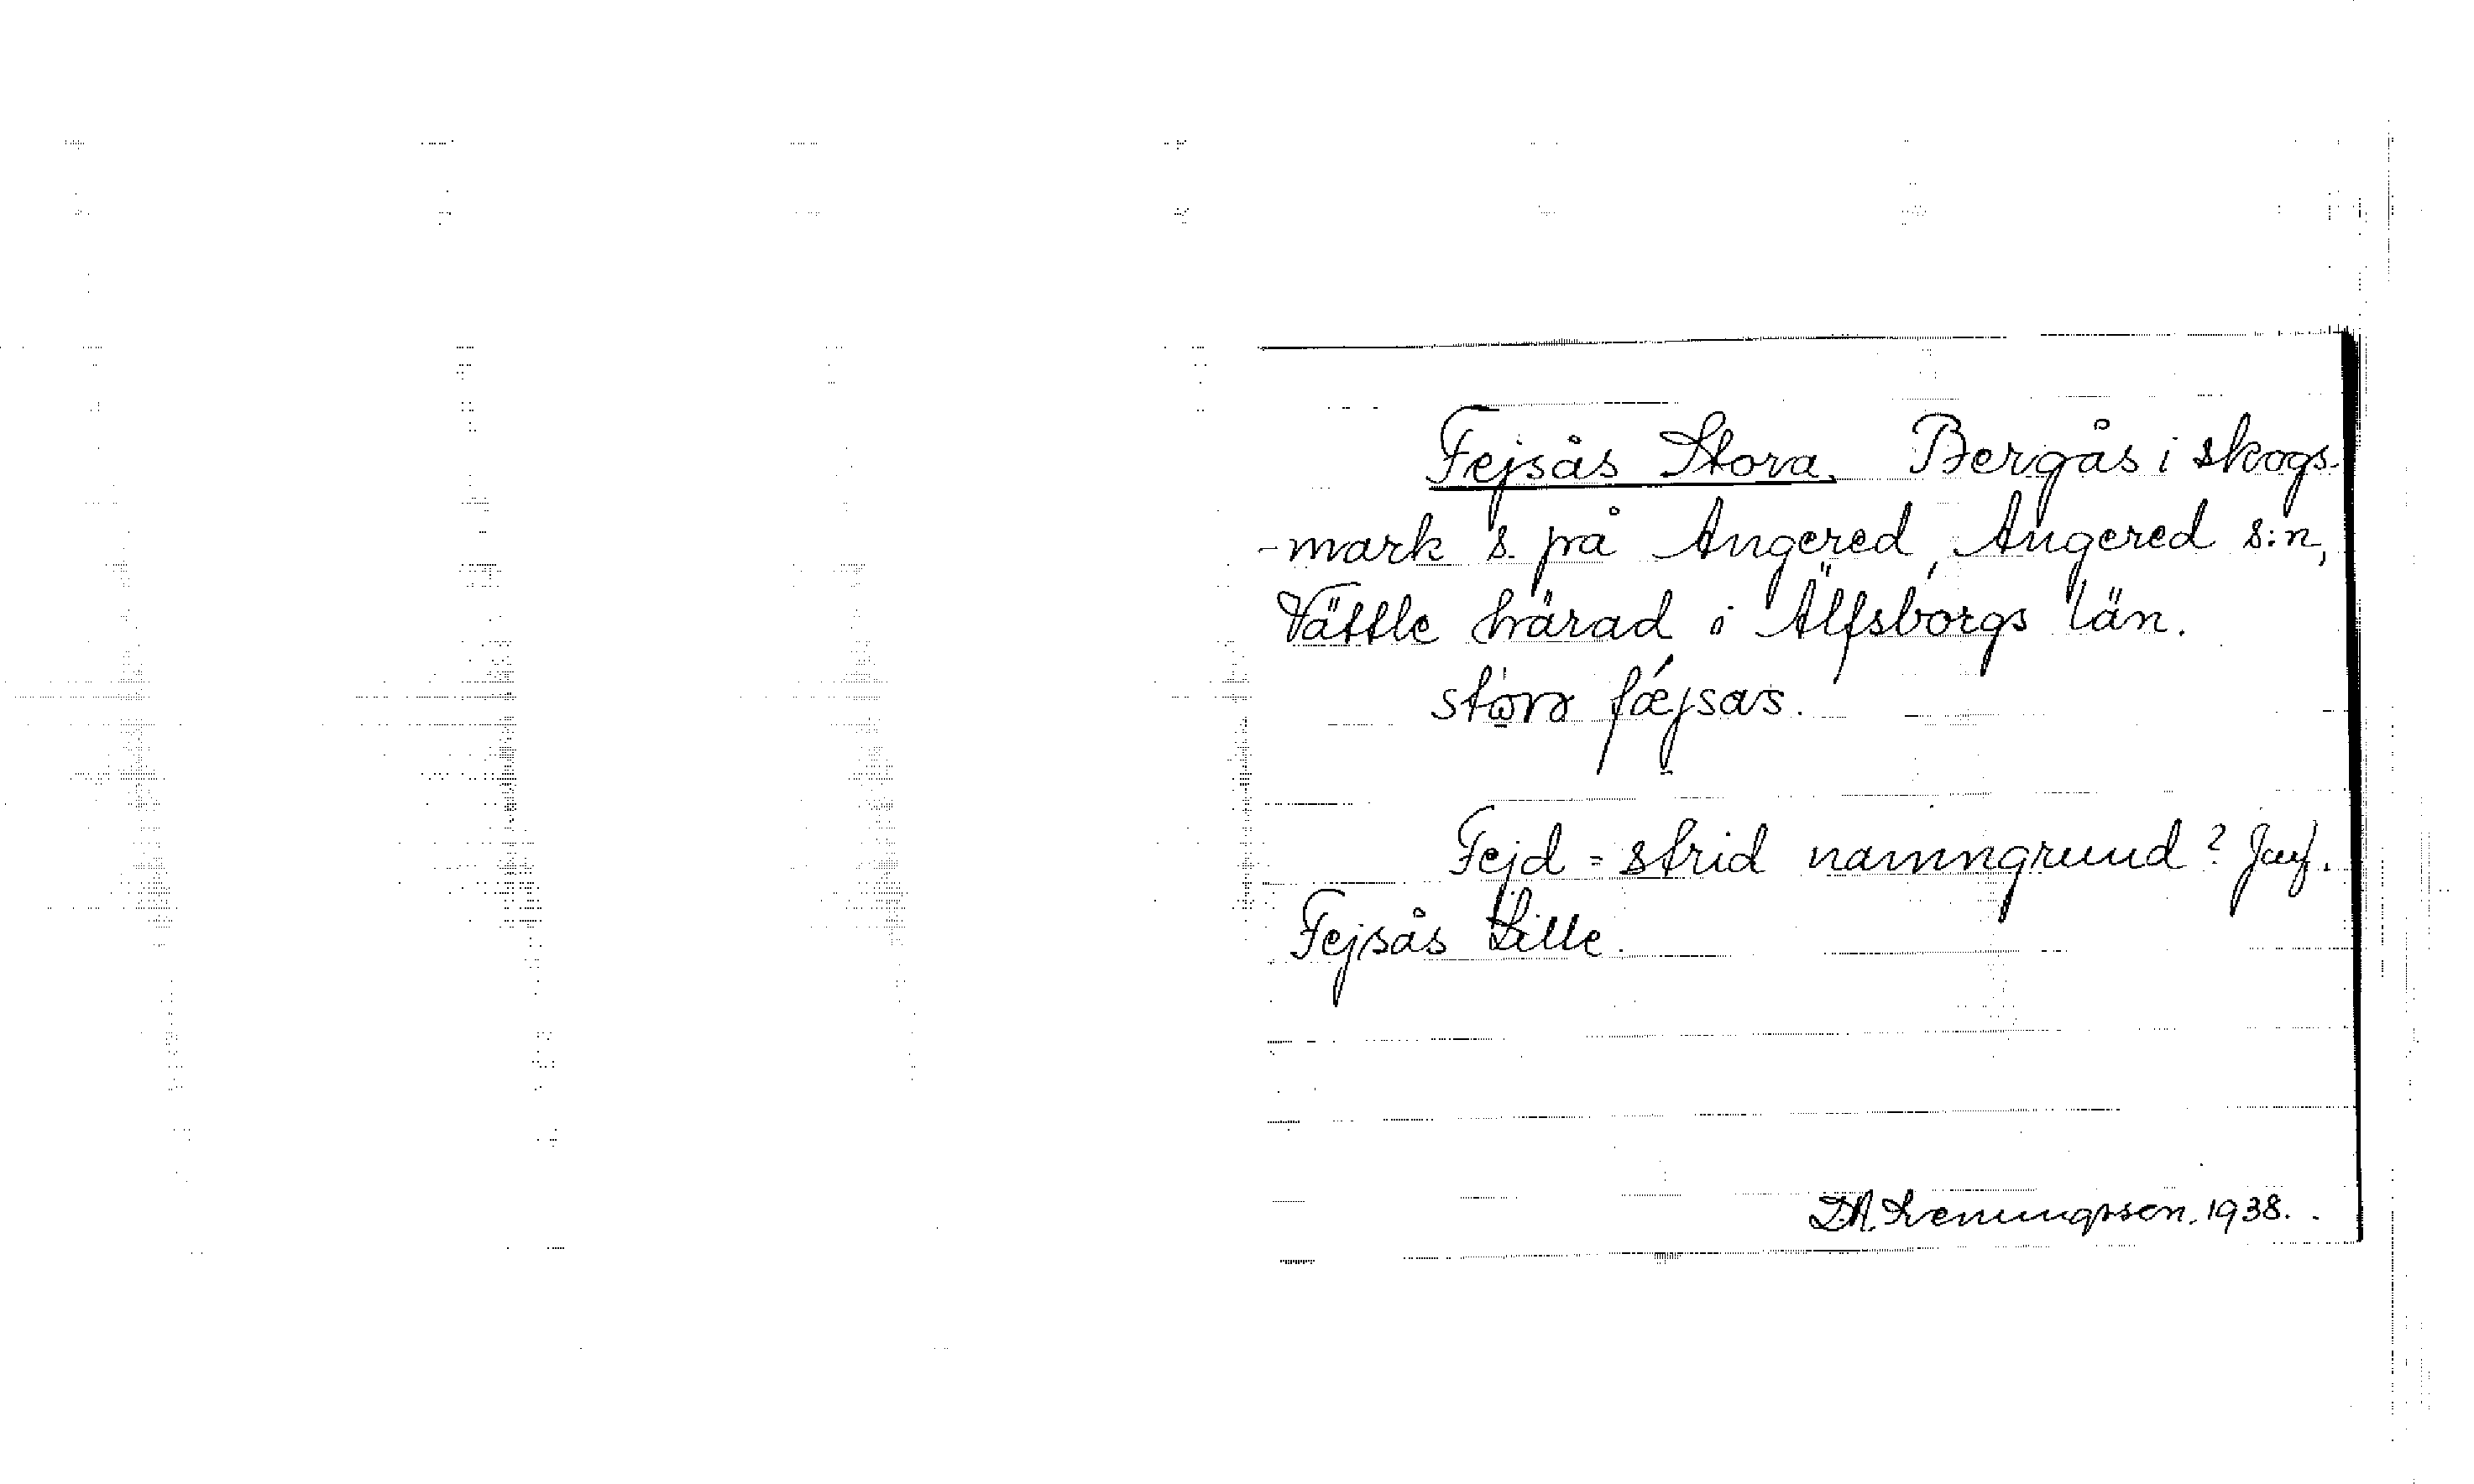 Fejsås Stora. Bergås i skogs-
-mark s. på Angered, Angered s:n,
Vättle härad i Älfsborgs län.
Fejd = strid namngrund? Jmf.
Fejsås Lille.
1938.